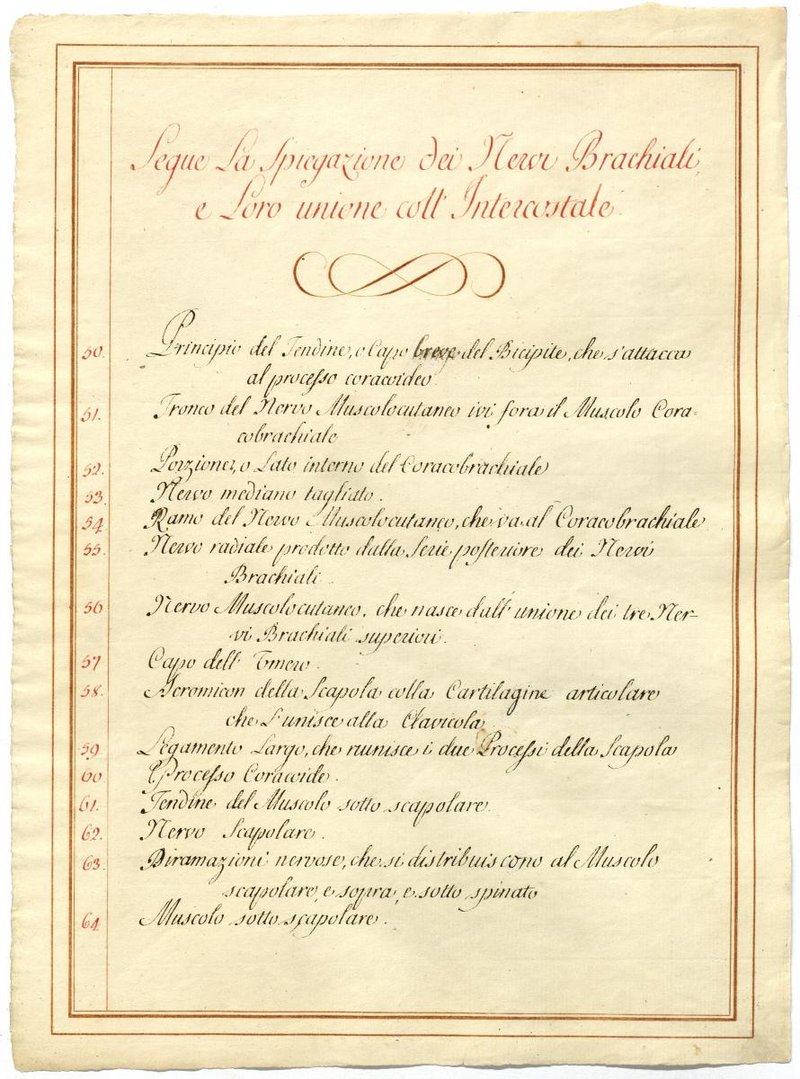 Segue La Spiegazione dei Nervi Brachiali,
e Loro unione coll' Intercostale
50. Principio del Tendine, o Capo breve del Bicipite, che s'attacca
al processo coracoideo
51. Tronco del Nervo Muscolocutaneo ivi fora il Muscolo Cora=
cobrachiale
52. Porzione, o Lato interno del Coracobrachiale
53. Nervo mediano tagliato.
54 Ramo del Nervo Muscolocutaneo, che va al Coracobrachiale
55. Nervo radiale prodotto dalla Serie posteriore dei Nervi
Brachiali.
56 Nervo Muscolocutaneo, che nasce dall' unione dei tre Ner-
vi Brachiali superiori.
57 Capo dell' Omero.
58. Acromicon della Scapola colla Cartilagine articolare
che L'unisce alla Clavicola
59 Legamento Largo, che riunisce i due Processi della Scapola
60 Processo Coracoide.
61. Tendine del Muscolo sotto scapolare.
62. Nervo Scapolare.
63. Diramazioni nervose, che si distribuiscono al Muscolo
scapolare, e sopra, e sotto spinato
64 Muscolo sotto scapolare.